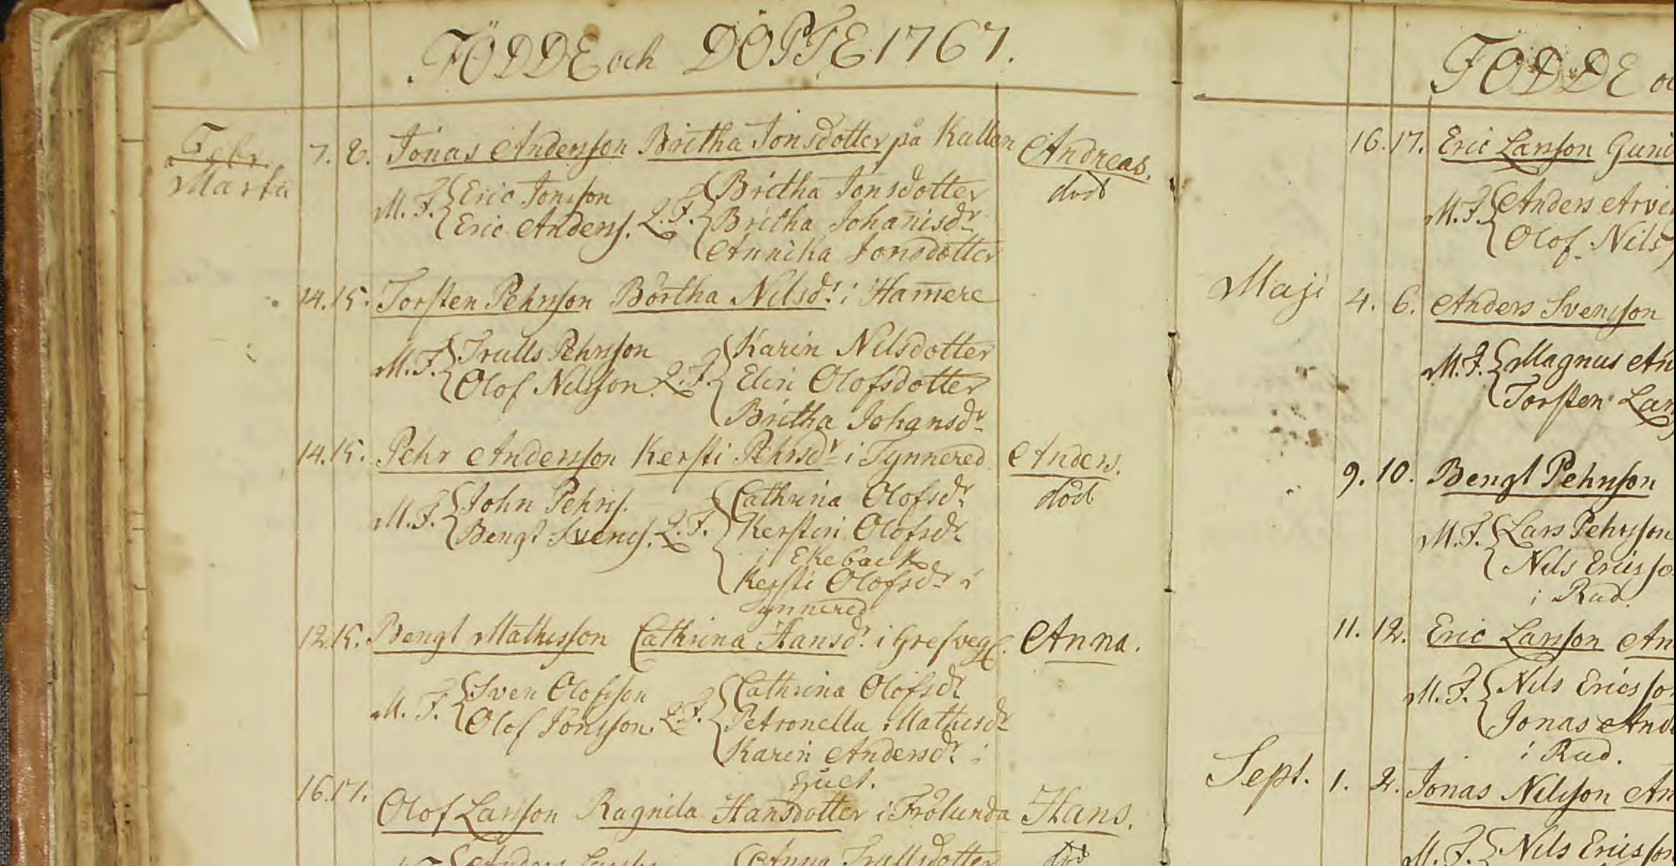 FÖDDE och DÖPTE 1767.
Febr.
Martii
7. 8. Jonas Andersson Britha Jonsdotter på Kullen Andreas.
död
M. F. Eric Jonsson
Eric Anderss. Q. F. Britha Jonsdotter
Britha Johanisdr
Annika Jonsdotter
14. 15. Torsten Pehrsson Börtha Nilsdr i Hamere
M. F. Trulls Pehrsson
Olof Nilsson. Q. F. Karin Nilsdotter
Elin Olofsdotter
Britha Johansdr
14. 15. Pehr Andersson Kersti Pehrsdr i Tynnered Anders.
död
M. F. John Pehrss.
Bengt Svenss. Q. F. Cathrina Olofsdr
Kerstin Olofsdr
i Ekeback
Kersti Olofsdr i
Tynnered
12. 15. Bengt Mathisson Cathrina Hansdr i Anna.
M. F. Sven Olofsson
Olof Jonsson. Q. F. Cathrina Olofsdr
Petronella Mathisdr
Karin Andersdr i
16. 17. Olof Larsson Ragnila Hansdotter i Frölunda Hans.
död
Anders Larss
Anna Trullsdotter
FÖDDE oc
16. 17. Eric Larsson Gun
M. F. Anders Arvi
Olof Nils
Maji 4. 6. Anders Svensson
M. F. Magnus An
Torsten Lar
9. 10. Bengt Pehrsson
M. F. Lars Pehrsson
Nils Ericsso
i Rud.
11. 12. Eric Larsson An
M. F. Nils Ericsso
Jonas And
i Rud.
Sept. 1. 2. Jonas Nilsson An
M. F. Nils Ericss